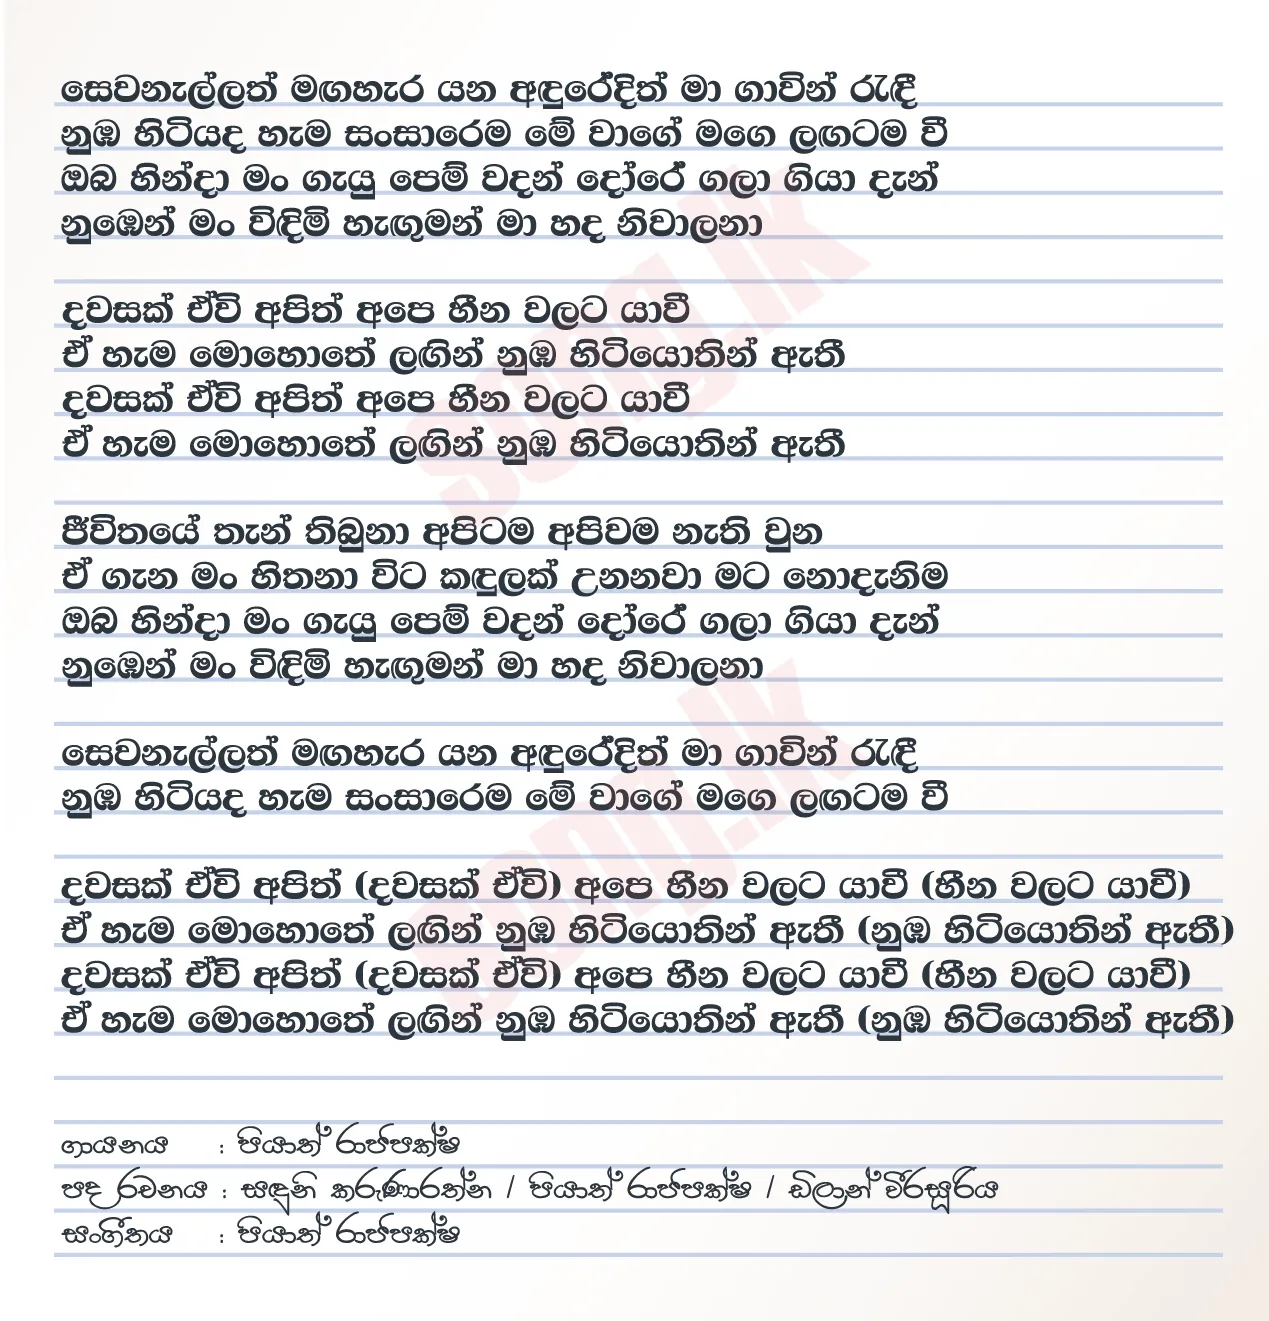 සෙවනැල්ලත් මඟහැර යන අඳුරේදිත් මා ගාවින් රැඳී
නුඹ හිටියද හැම සංසාරෙම මේ වාගේ මගෙ ලඟටම වී
ඔබ හින්දා මං ගැයු පෙම් වදන් දෝරේ ගලා ගියා දැන්
නුඹෙන් මං විඳිමි හැඟුමන් මා හද නිවාලනා
දවසක් ඒවි අපිත් අපෙ හීන වලට යාවී
ඒ හැම මොහොතේ ලඟින් නුඹ හිටියොතින් ඇතී
දවසක් ඒවි අපිත් අපෙ හීන වලට යාවී
ඒ හැම මොහොතේ ලඟින් නුඹ හිටියොතින් ඇතී
ජීවිතයේ තැන් තිබුනා අපිටම අපිවම නැති වුන
ඒ ගැන මං හිතනා විට කඳුලක් උනනවා මට නොදැනිම
ඔබ හින්දා මං ගැයු පෙම් වදන් දෝරේ ගලා ගියා දැන්
නුඹෙන් මං විඳිමි හැඟුමන් මා හද නිවාලනා
සෙවනැල්ලත් මඟහැර යන අඳුරේදිත් මා ගාවින් රැඳී
නුඹ හිටියද හැම සංසාරෙම මේ වාගේ මගෙ ලඟටම වී
දවසක් ඒවි අපිත් (දවසක් ඒවි) අපෙ හීන වලට යාවී (හීන වලට යාවී)
ඒ හැම මොහොතේ ලඟින් නුඹ හිටියොතින් ඇතී (නුඹ හිටියොතින් ඇතී)
දවසක් ඒවි අපිත් (දවසක් ඒවි) අපෙ හීන වලට යාවී (හීන වලට යාවී)
ඒ හැම මොහොතේ ලඟින් නුඹ හිටියොතින් ඇතී (නුඹ හිටියොතින් ඇතී)
ගායනය : පියාත් රාජපක්ෂ
පද රචනය : සඳුනි කරුණාරත්න / පියාත් රාජපක්ෂ / ඩිලාන් වීරසූරිය
සංගීතය : පියාත් රාජපක්ෂ
song.lk
song.lk